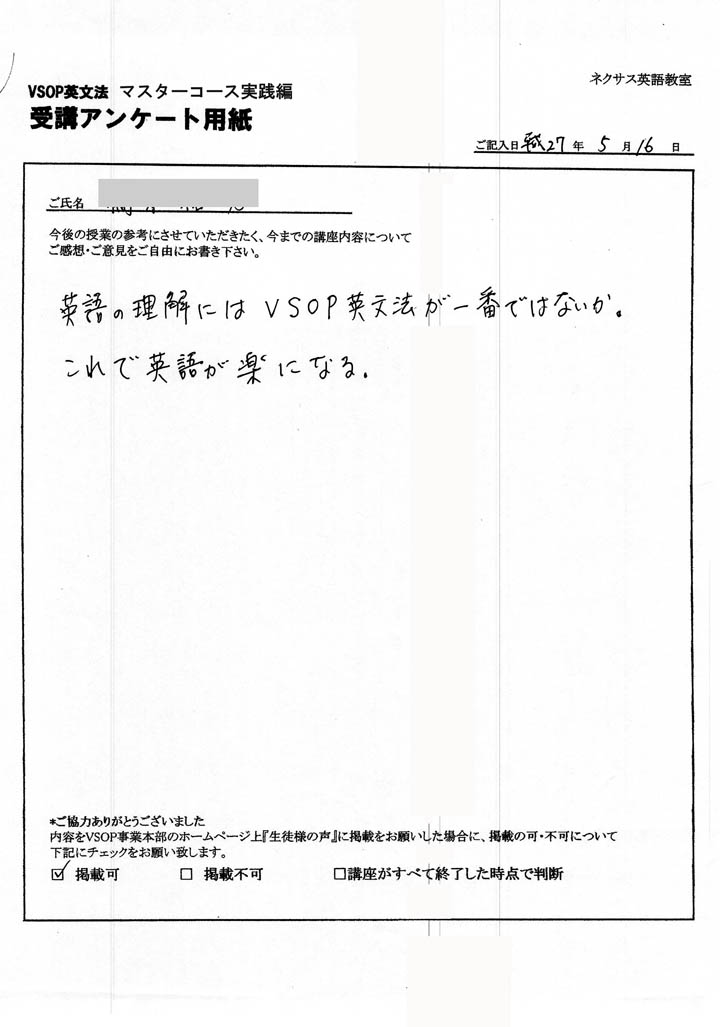 ネクサス英語教室
VSOP英文法 マスターコース実践編
受講アンケート用紙
ご記入日 平成27年 5月16日
ご氏名
今後の授業の参考にさせていただきたく、今までの講座内容について
ご感想・ご意見をご自由にお書き下さい。
英語の理解にはVSOP英文法が一番ではないか。
これで英語が楽になる。
*ご協力ありがとうございました
内容をVSOP事業本部のホームページ上『生徒様の声』に掲載をお願いした場合に、掲載の可・不可について
下記にチェックをお願い致します。
☑ 掲載可 □ 掲載不可 □講座がすべて終了した時点で判断